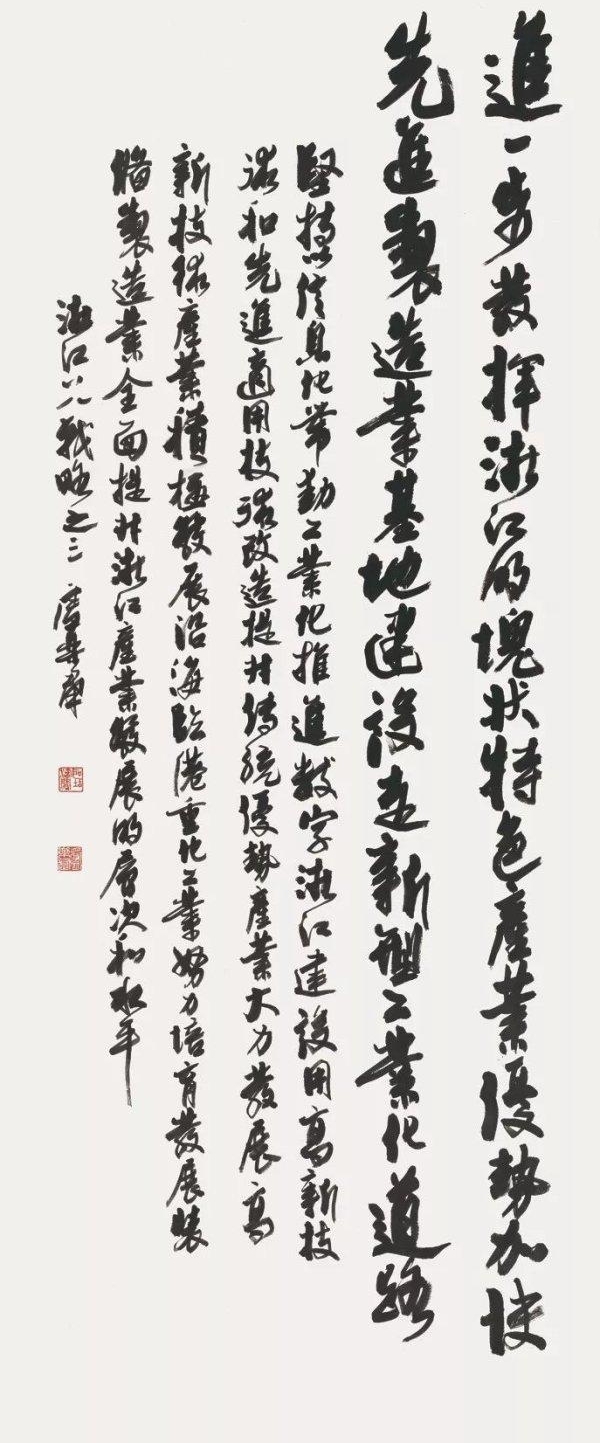 進一步發揮浙江的塊狀特色產業優勢加快
先進製造業基地建設走新型工業化道路
堅持以信息化帶動工業化推進数字浙江建設用高新技
術和先進適用技術改造提升傳統優勢產業大力發展高
新技術產業積極發展沿海臨港重化工業努力培育發展裝
備製造業全面提升浙江產業發展的層次和水平
浙江八八戰略之三